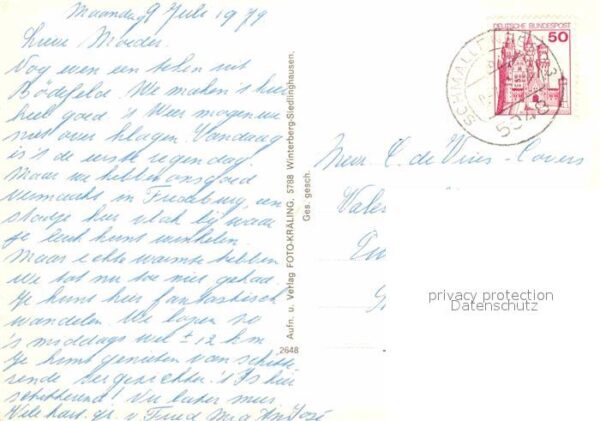 Maandag 9 Juli 1979
Lieve Moeder.
Nog even een teken uit
Bödefeld. We maken 't hier
heel goed 's Weer mogen we
niet over klagen. Vandaag
is 't de eerste regendag.
Maar we hebben ons goed
vermaakt in Fredeburg, een
stadje hier vlak bij waar
je leuk kunt winkelen.
Maar echte warmte hebben
we tot nu toe niet gehad.
Je kunt hier fantastisch
wandelen. We lopen zo
's middags wel ± 12 km
Je kunt genieten van schitte
rende vergezichten. 't Is hier
schitterend! Nu later meer
Vele hart. gr. v Fred
Aufn. u. Verlag FOTO-KRÄLING, 5788 Winterberg-Siedlinghausen.
Ges. gesch.
2648
DEUTSCHE BUNDESPOST
50
SCHMALLENBERG
5948
Mevr. C. de Vries-Covers
privacy protection
Datenschutz